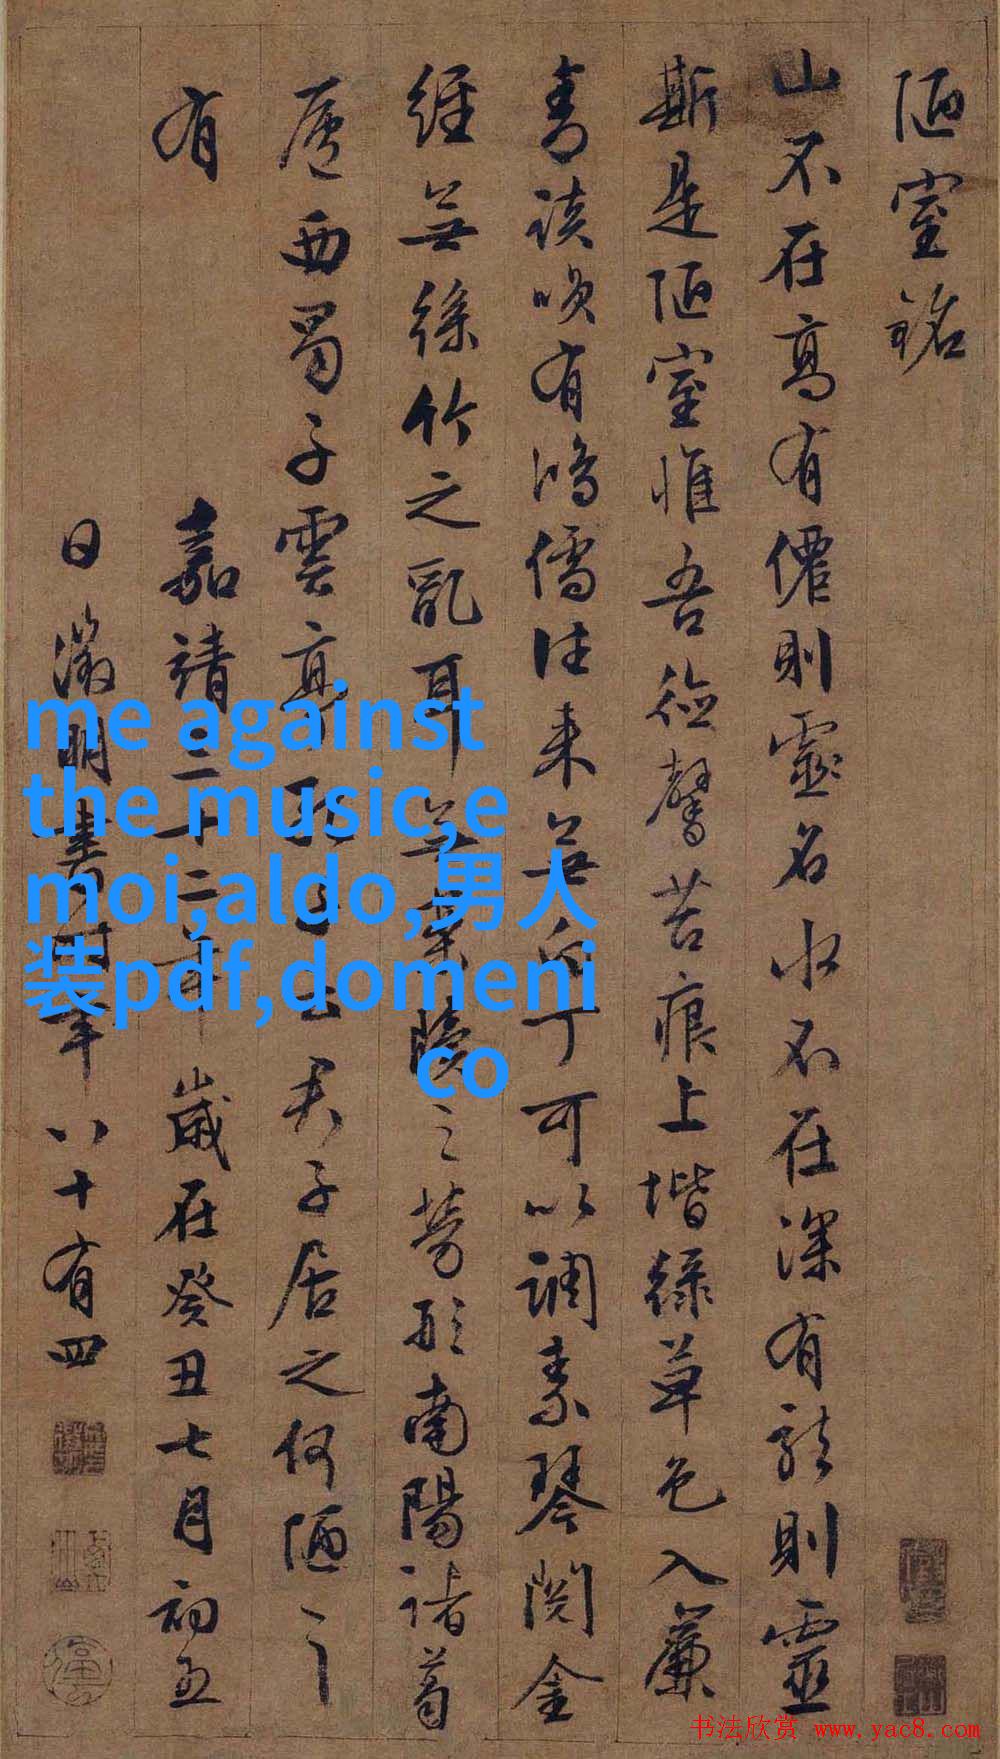 陋室銘
山不在高有僊則靈名水不在深有龍則靈
斯是陋室惟吾德馨苔痕上堦綠草色入簾
青談咲有鴻儒往来無白丁可以調素琴閱金
經無絲竹之亂耳無案牘之勞形南陽諸葛
廬西蜀子雲亭孔子云君子居之何陋之
有 嘉靖三十二年歲在癸丑七月初五
日徵明書時年八十有四
me against
the music,e
moi,aldo,男人
装pdf,domeni
co
书法欣赏 www.yac8.com